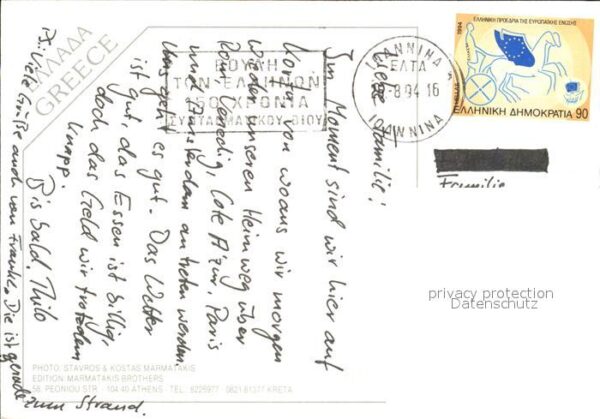 ΕΛΛΑΔΑ
GREECE
ΒΟΥΛΗ
ΤΩΝ ΕΛΛΗΝΩΝ
150 ΧΡΟΝΙΑ
ΣΥΝΤΑΓΜΑΤΙΚΟΥ ΒΙΟΥ
ΙΩΑΝΝΙΝΑ
ΕΛΤΑ
-8-94 16
ΙΩΑΝΝΙΝΑ
1994 ΕΛΛΗΝΙΚΗ ΠΡΟΕΔΡΙΑ ΤΗΣ ΕΥΡΩΠΑΪΚΗΣ ΕΝΩΣΗΣ
HELLAS
ΕΛΛΗΝΙΚΗ ΔΗΜΟΚΡΑΤΙΑ 90
Liebe Familie!
Im Moment sind wir hier auf
Korfu, von woaus wir morgen
wieder unseren Heimweg über
Rom, Venedig, Cote d'Azur, Paris
und Amsterdam antreten werden.
Uns geht es gut. Das Wetter
ist gut, das Essen ist billig,
doch das Geld wir trotzdem
knapp.
Bis bald, Thilo
Viele Grüße auch von Frauke. Die ist gerade
zum Strand.
Familie
privacy protection
Datenschutz
PHOTO: STAVROS & KOSTAS MARMATAKIS
EDITION: MARMATAKIS BROTHERS
58, PEONIOU STR. - 104 40 ATHENS - TEL.: 8225977 - 0821-81377 KRETA